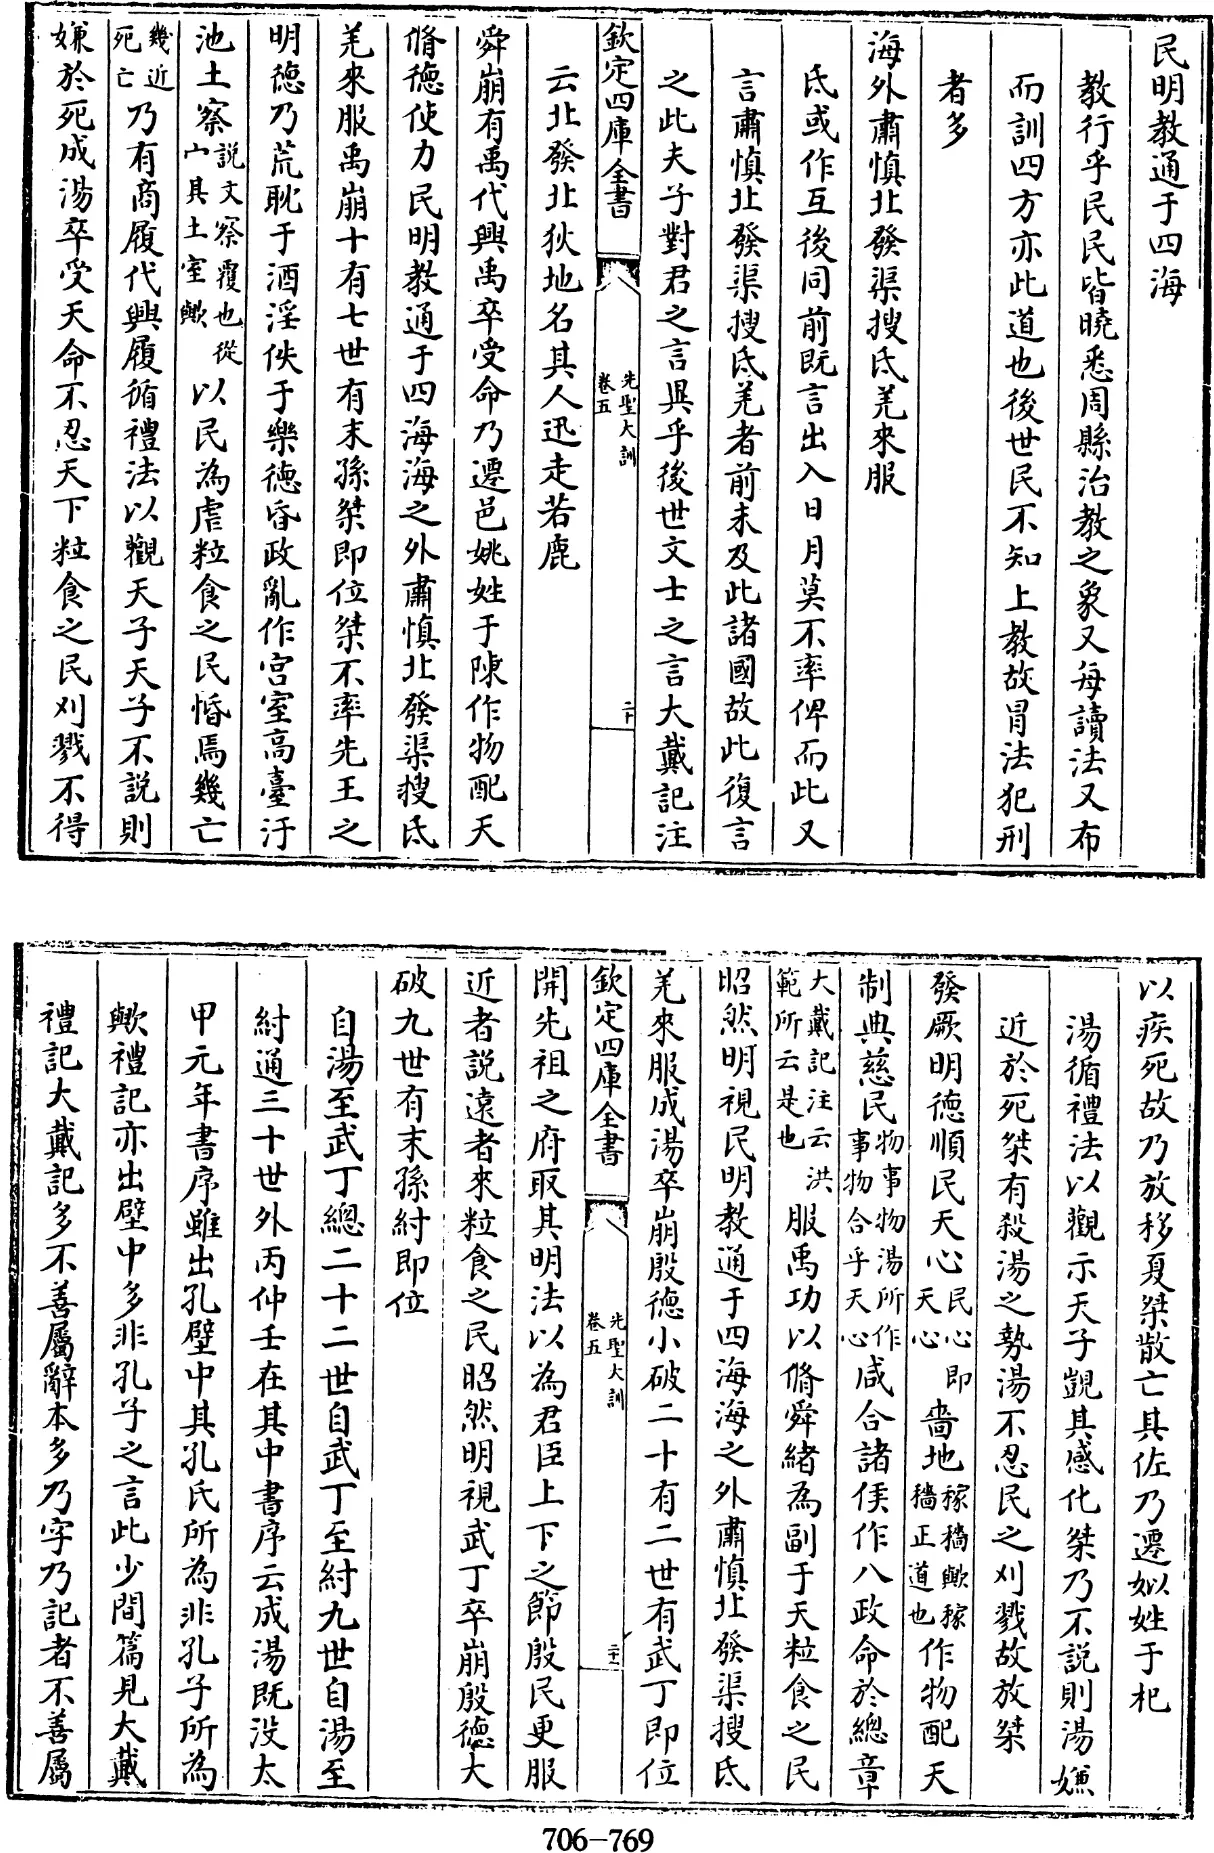 民明教通于四海
教行乎民民皆曉悉周縣治教之象又每讀法又布
而訓四方亦此道也後世民不知上教故冒法犯刑
者多
海外肅慎北發渠搜氐羌來服
氐或作互後同前既言出入日月莫不率俾而此又
言肅慎北發渠搜氐羌者前未及此諸國故此復言
之此夫子對君之言異乎後世文士之言大戴記注
欽定四庫全書
先聖大訓
卷五
二十
云北發北狄地名其人迅走若鹿
舜崩有禹代興禹卒受命乃遷邑姚姓于陳作物配天
脩德使力民明教通于四海海之外肅慎北發渠搜氐
羌來服禹崩十有七世有末孫桀即位桀不率先王之
明德乃荒耽于酒淫佚于樂德昏政亂作宮室高臺汙
池土察說文察覆也從宀其土室歟以民為虐粒食之民惛焉幾亡
幾近死亡乃有商履代興履循禮法以觀天子天子不說則
嫌於死成湯卒受天命不忍天下粒食之民刈戮不得
以疾死故乃放移夏桀散亡其佐乃遷姒姓于杞
湯循禮法以觀示天子覬其感化桀乃不說則湯嫌
近於死桀有殺湯之勢湯不忍民之刈戮故放桀
發厥明德順民天心民心即天心嗇地稼穡歟稼穡正道也作物配天
制典慈民物事物湯所作事物合乎天心咸合諸侯作八政命於總章
大戴記注云洪範所云是也服禹功以脩舜緒為副于天粒食之民
昭然明視民明教通于四海海之外肅慎北發渠搜氐
羌來服成湯卒崩殷德小破二十有二世有武丁即位
欽定四庫全書
先聖大訓
卷五
二十一
開先祖之府取其明法以為君臣上下之節殷民更服
近者說遠者來粒食之民昭然明視武丁卒崩殷德大
破九世有末孫紂即位
自湯至武丁總二十二世自武丁至紂九世自湯至
紂通三十世外丙仲壬在其中書序云成湯既沒太
甲元年書序雖出孔壁中其孔氏所為非孔子所為
歟禮記亦出壁中多非孔子之言此少間篇見大戴
禮記大戴記多不善屬辭本多乃字乃記者不善屬
706-769